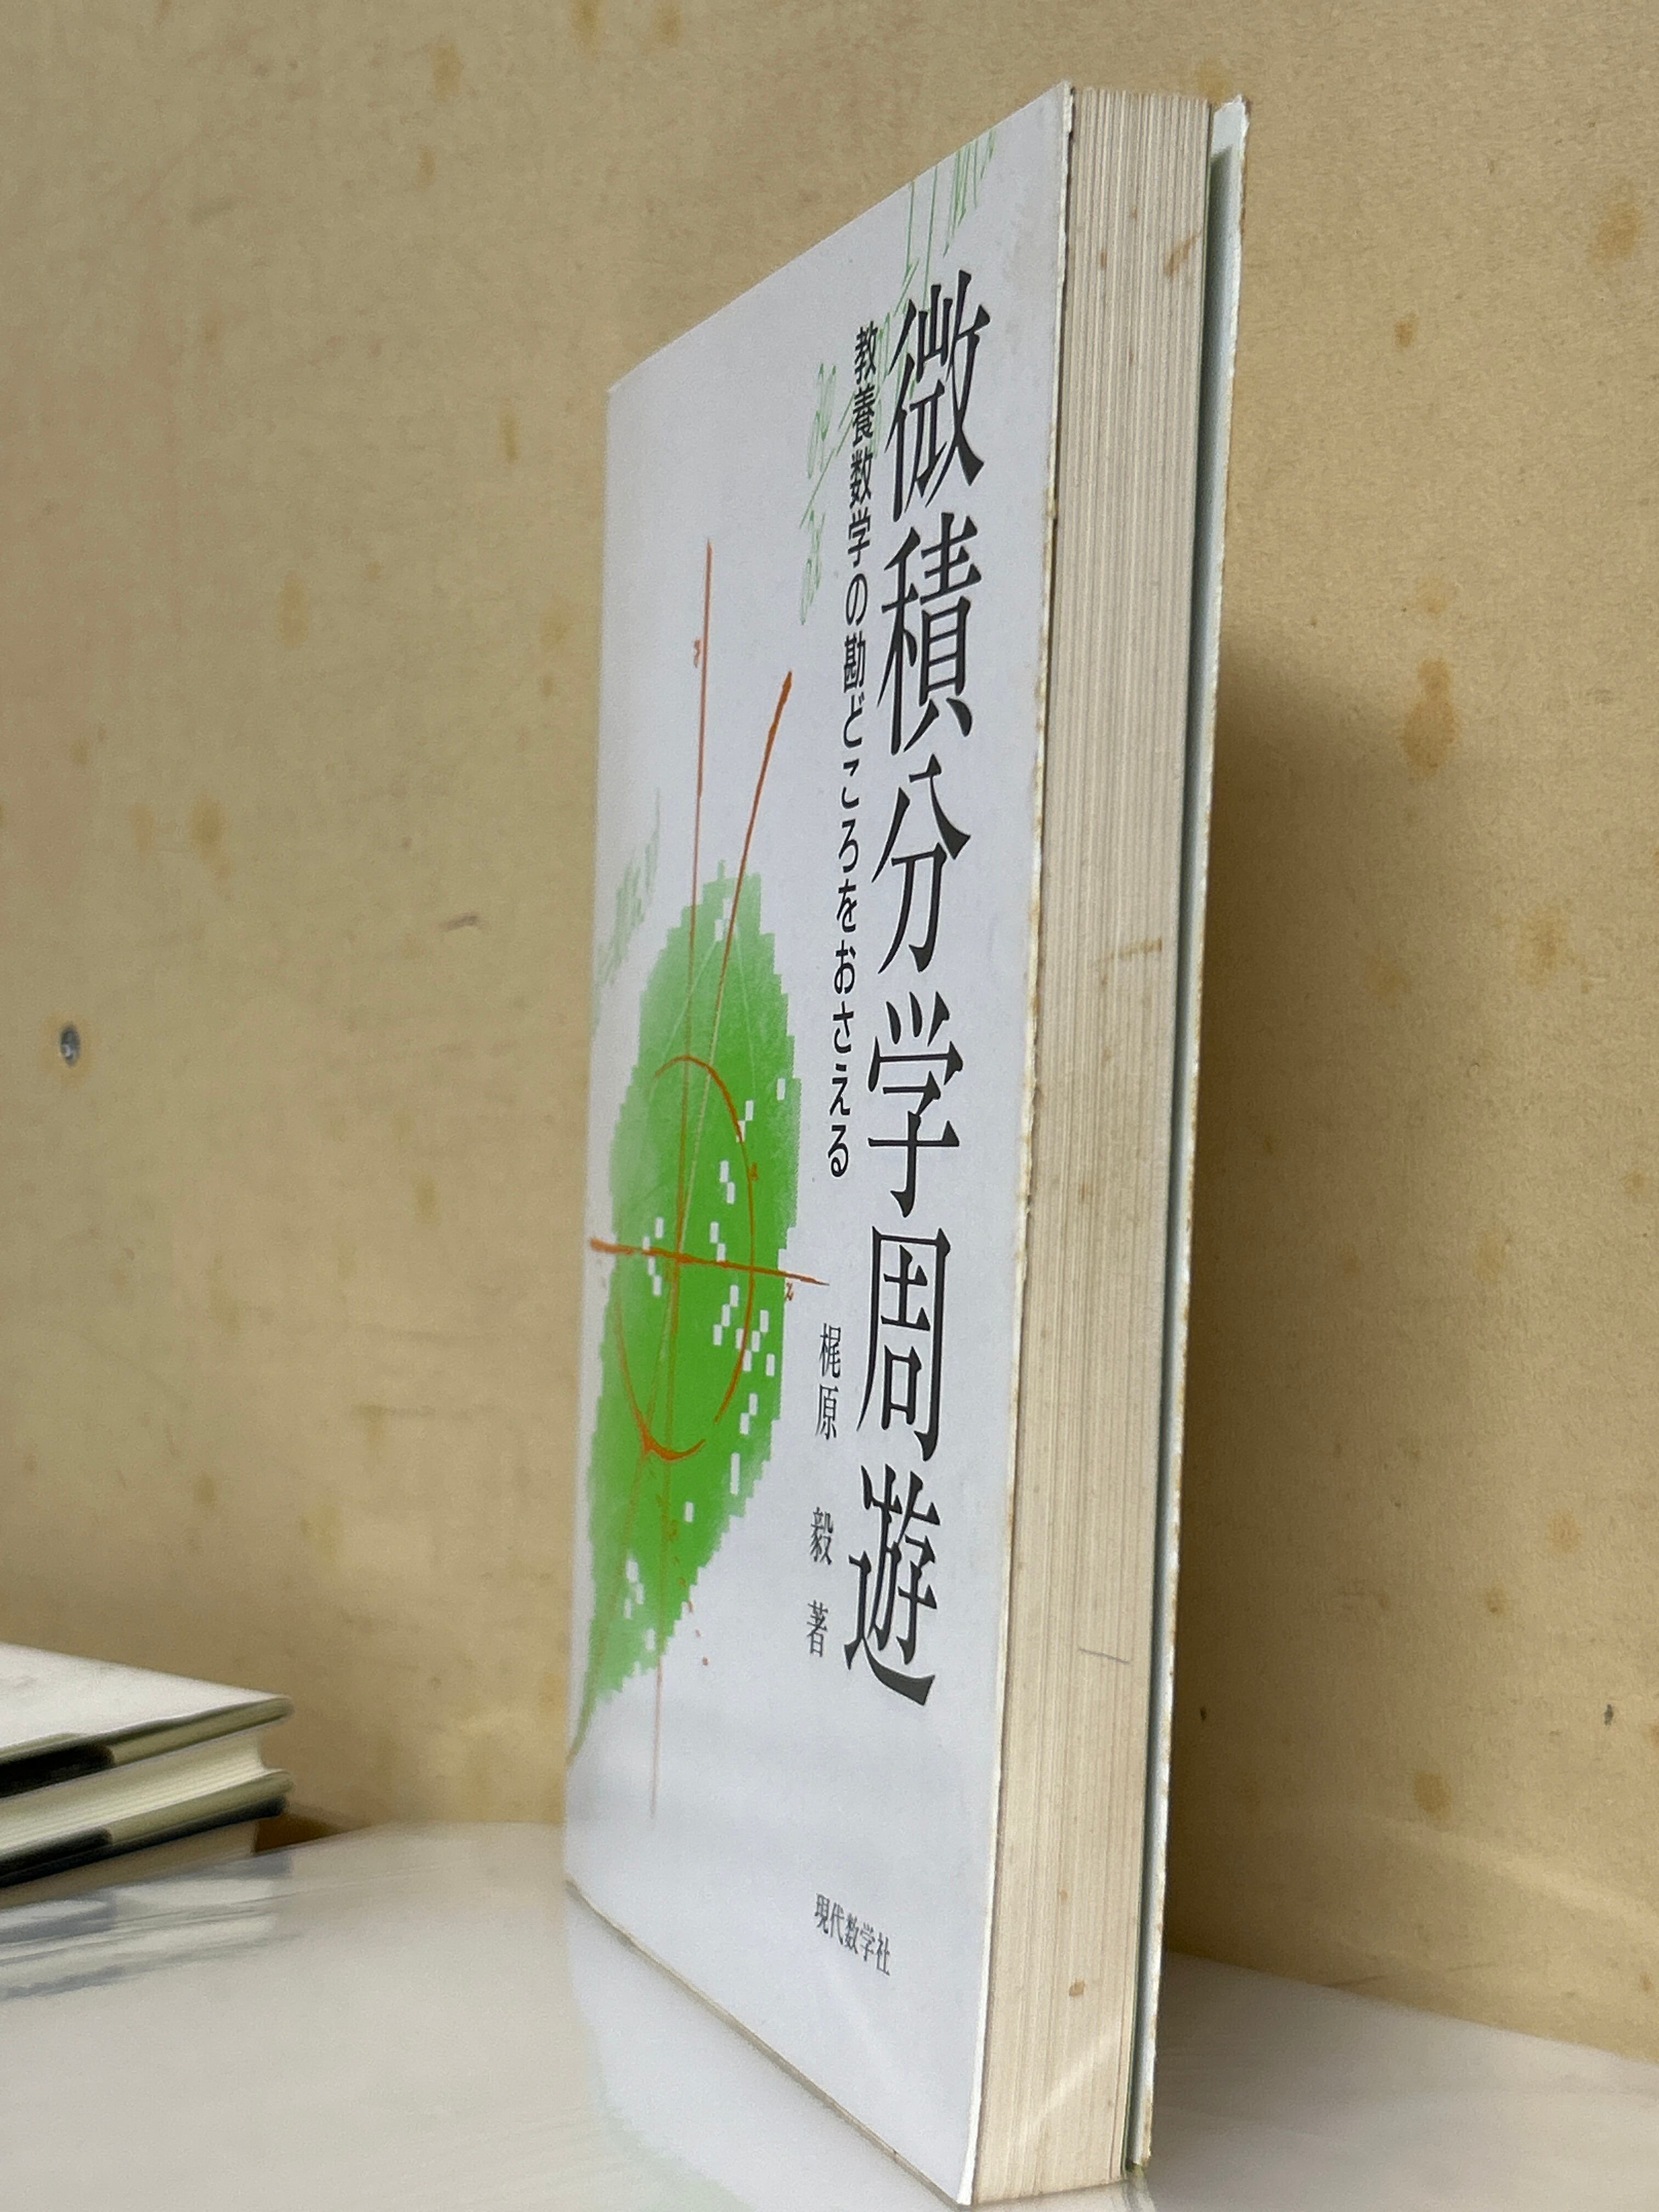 微積分学周遊
教養数学の勘どころをおさえる
梶原 毅 著
現代数学社